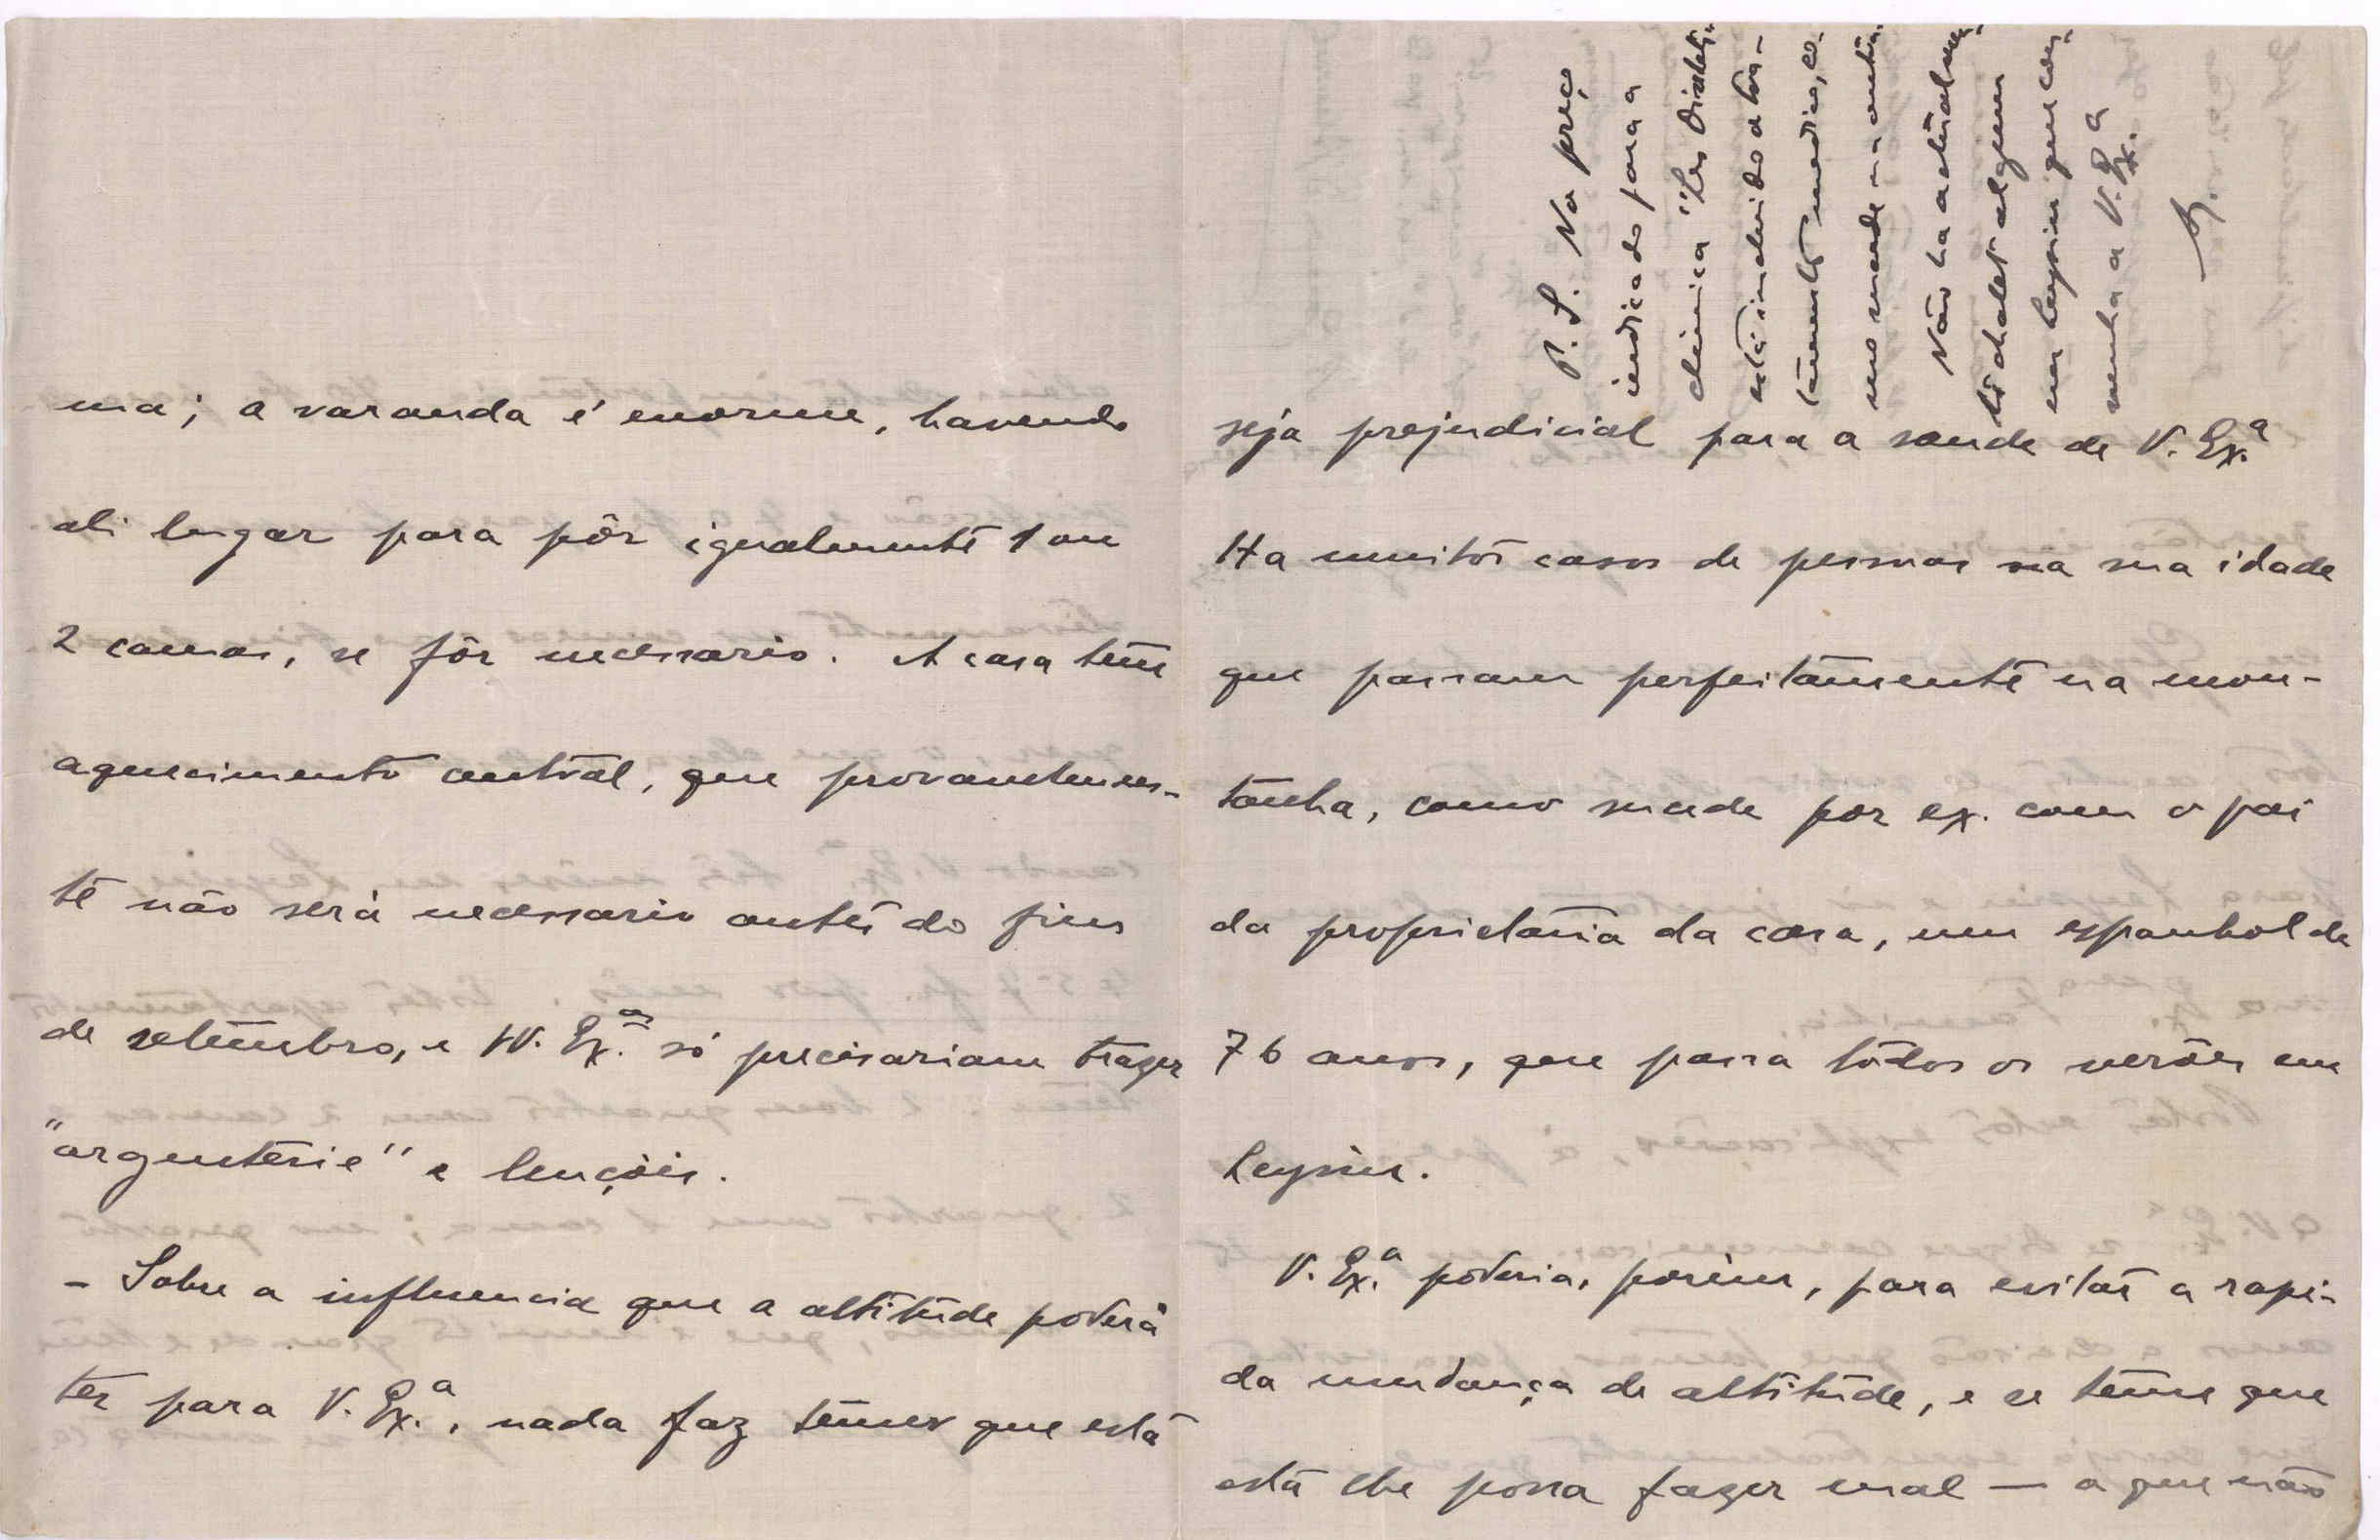 ma; a varanda é enorme, havendo
ali lugar para pôr igualmente 1 ou
2 camas, se fôr necessario. A casa tem
aquecimento central, que provavelmen-
te não será necessario antes do fim
de setembro, e VV. Ex.as só precisariam trazer
"argenterie" e lençóis.
- Sobre a influencia que a altitude poderá
ter para V. Ex.a, nada faz temer que esta
seja prejudicial para a saude de V. Ex.a
Ha muitos casos de pessoas na sua idade
que passam perfeitamente na mon-
tanha, como sucede por ex. com o pai
da proprietaria da casa, um espanhol de
76 anos, que passa todos os verões em
Leysin.
V. Ex.a poderia, porém, para evitar a rapi-
da mudança de altitude, e se teme que
esta lhe possa fazer mal — o que não
P. S. No preço
indicado para a
clinica "Les Diablets
está incluido o tra-
tamento medico, co-
mo sucede na outra.
Não ha actualmen-
te chalet algum
em Leysin que con-
venha a V. Ex.a